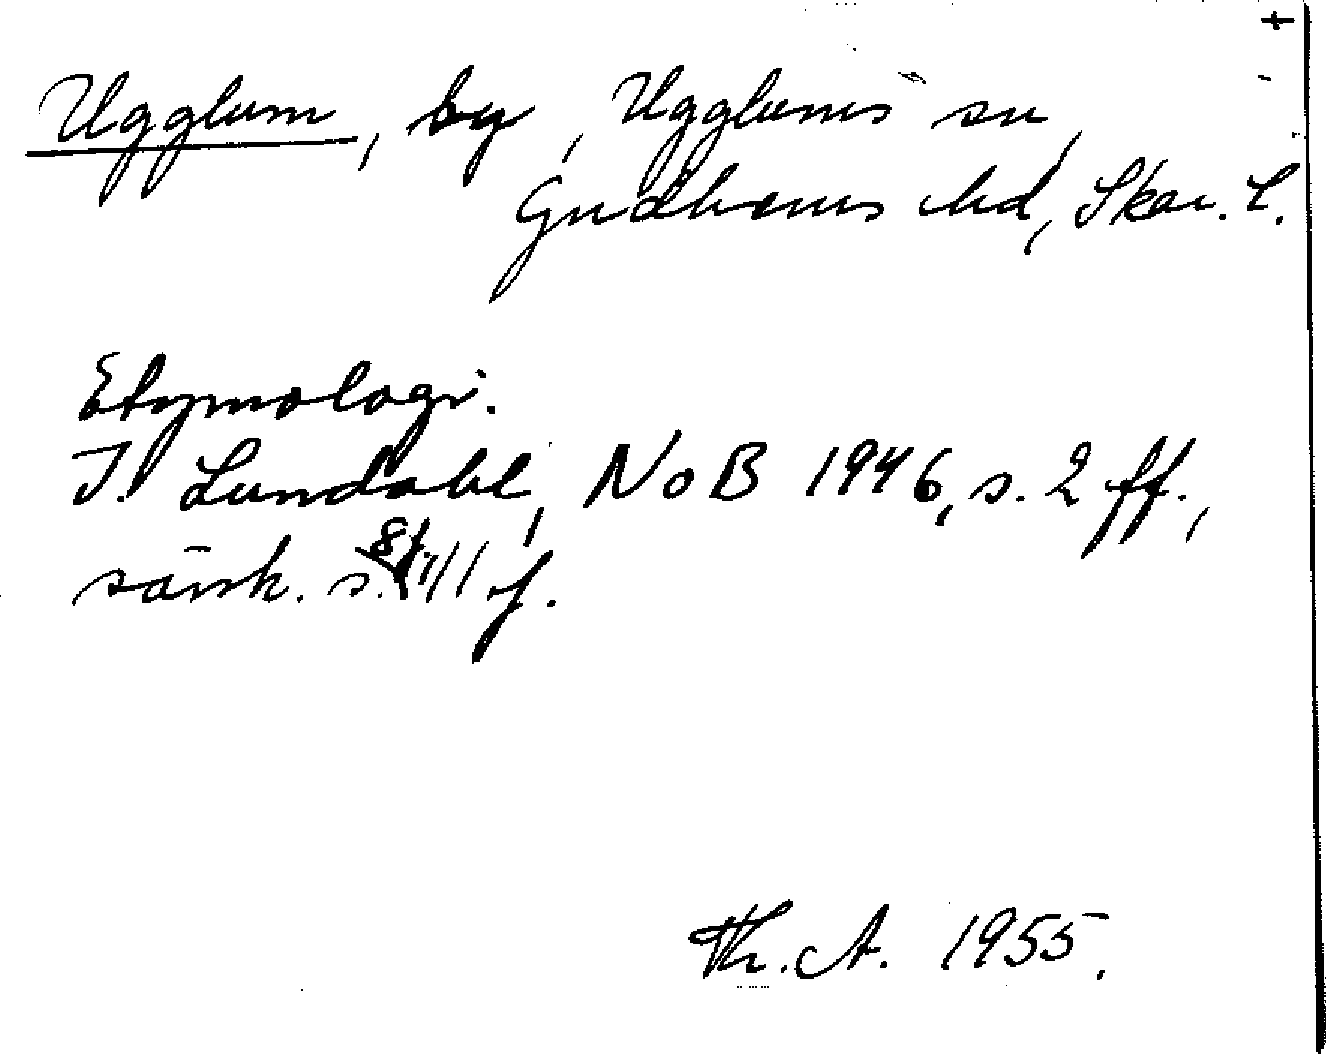 Ugglum, by, Ugglums sn,
Gudhems hd, Skar. l.
Etymologi.
I. Lundahl, NoB 1946, s. 2 ff.,
särsk. s. 8 f.
Th. A. 1955.